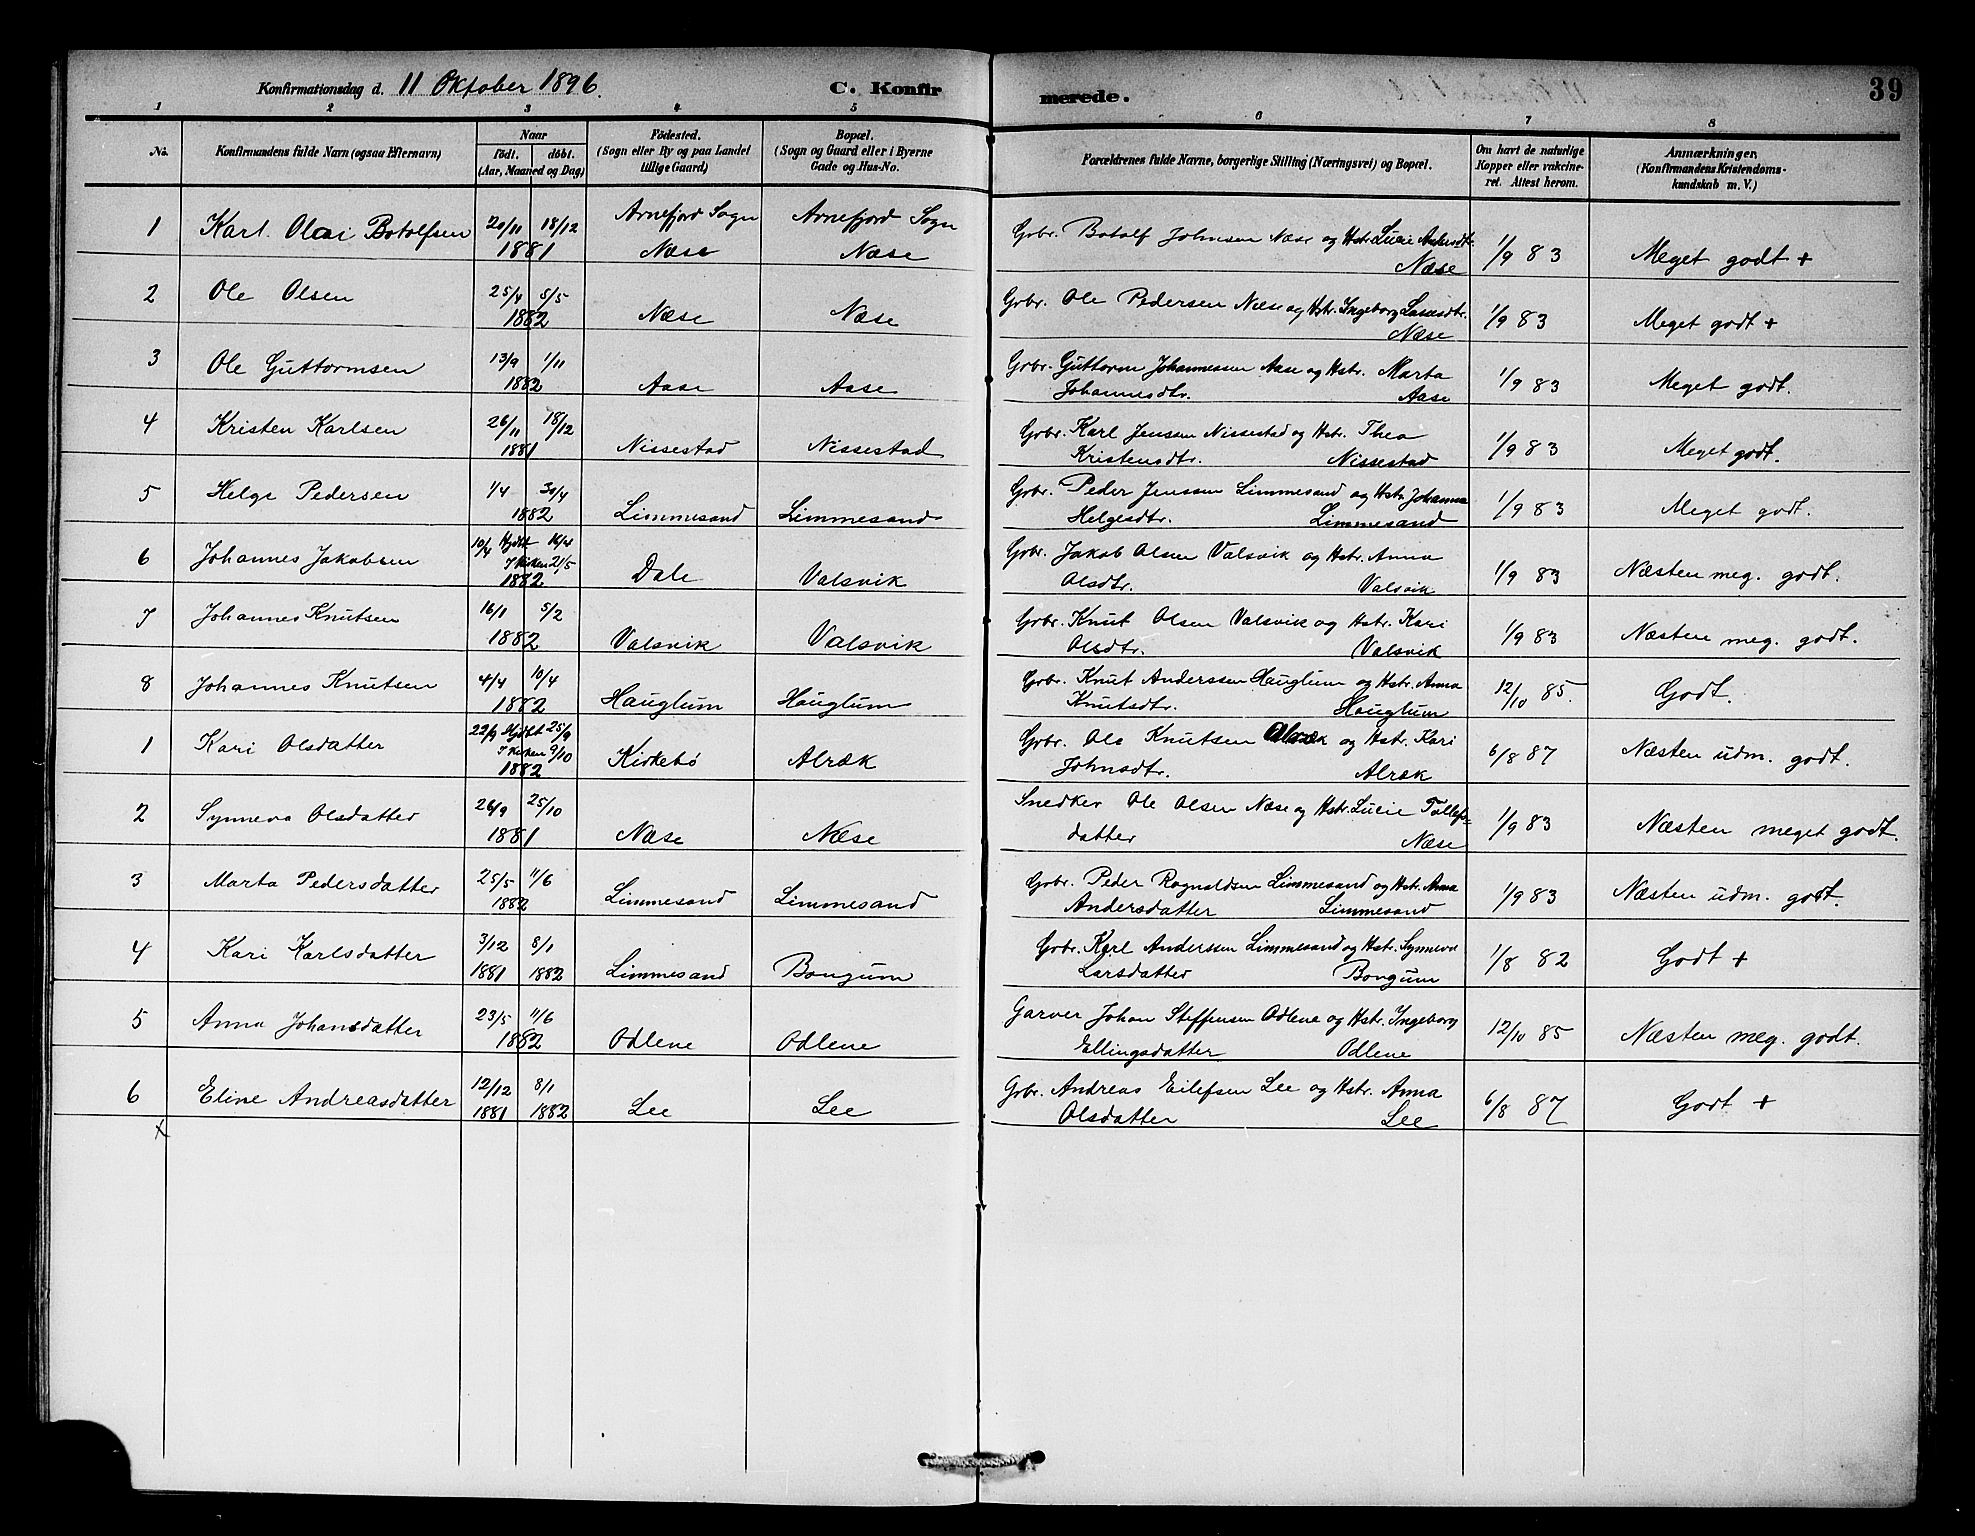 Konfirmationsdag d. 11 Oktober 1896. C. Konfirmerede. 39
1 2 3 4 5 6 7 8
No. Konfirmandens fulde Navn (ogsaa Efternavn) Naar födt. döbt. (Aar, Maaned og Dag) Födested. (Sogn eller By og paa Landet tillige Gaard) Bopæl. (Sogn og Gaard eller i Byerne Gade og Hus-No. Forældrenes fulde Navne, borgerlige Stilling (Næringsvei) og Bopæl. Om havt de naturlige Kopper eller vakcineret. Attest herom. Anmærkninger, (Konfirmandens Kristendomskundskab m. V.)
1 Karl Olai Botolfsen 20/11 18/12 1881 Arnefjord Sogn Næse Arnefjord Sogn Næse Grbr. Botolf Johnsen Næse og Hstr. Lucie Næse 1/9 83 Meget godt +
2 Ole Olsen 25/4 5/5 1882 Næse Næse Grbr. Ole Pedersen Næse og Hstr. Ingeborg Lasesdtr. Næse 1/9 83 Meget godt +
3 Ole Guttormsen 13/9 1/11 1882 Aase Aase Grbr. Guttorm Johannessen Aase og Hstr. Marta Johannesdtr. Aase 1/9 83 Meget godt.
4 Kristen Karlsen 26/11 18/12 1881 Nissestad Nissestad Grbr. Karl Jenssen Nissestad og Hstr. Thea Kristensdtr. Nissestad 1/9 83 Meget godt.
5 Helge Pedersen 1/4 30/4 1882 Limmesand Limmesand Grbr. Peder Jenssen Limmesand og Hstr. Johanna Helgesdtr. Limmesand 1/9 83 Meget godt.
6 Johannes Jakobsen 10/4 Hjdbt 16/4 I Kirken 21/5 1882 Dale Valsvik Grbr. Jakob Olsen Valsvik og Hstr. Anna Olsdtr. Valsvik 1/9 83 Næsten meg. godt.
7 Johannes Knutsen 16/1 5/2 1882 Valsvik Valsvik Grbr. Knut Olsen Valsvik og Hstr. Kari Olsdtr. Valsvik 1/9 83 Næsten meg. godt.
8 Johannes Knutsen 4/4 10/4 1882 Hauglum Hauglum Grbr. Knut Anderssen Hauglum og Hstr. Anna Knutsdtr. Hauglum 12/10 85. Godt.
1 Kari Olsdatter 22/9 Hjdbt 25/9 I Kirken 9/10 1882 Kirkebö Alræk Grbr. Ole Knutsen Alræk og Hstr. Kari Johnsdtr. Alræk 6/8 87 Næsten udm. godt.
2 Synneva Olsdatter 26/9 25/10 1881 Næse Næse Snedker Ole Olsen Næse og Hstr. Lucie Tollefsdatter Næse 1/9 83 Næsten meget godt.
3 Marta Pedersdatter 25/5 11/6 1882 Limmesand Limmesand Grbr. Peder Rognaldsen Limmesand og Hstr. Anna Andersdatter Limmesand 1/9 83 Næsten udm. godt.
4 Kari Karlsdatter 3/12 1881 8/1 1882 Limmesand Bongum Grbr. Karl Anderssen Limmesand og Hstr. Synneva Larsdatter Bongum 1/8 82 Godt +
5 Anna Johansdatter 23/5 11/6 1882 Odlene Odlene Garver Johan Steffensen Odlene og Hstr. Ingeborg Ellingsdatter Odlene 12/10 85 Næsten meg. godt.
6 Eline Andreasdatter 12/12 1881 8/1 1882 Lee Lee Grbr. Andreas Eilefsen Lee og Hstr. Anna Olsdatter Lee 6/8 87 Godt +
x